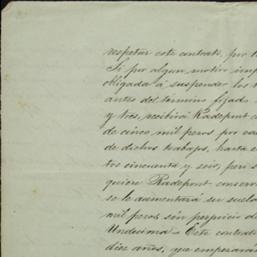 respetar este contrato, por
Si por algun motivo imp
obligada á suspender los
antes del término fijado
y tres, recibirá Radepont
de cinco mil pesos por
de dichos trabajos, hasta
tos cincuenta y seis, pero s
quiere Radepont conserv
se le aumentará su sueld
mil pesos sin perjuicio de
Undecima - Este contrat
diez años, que empezarán